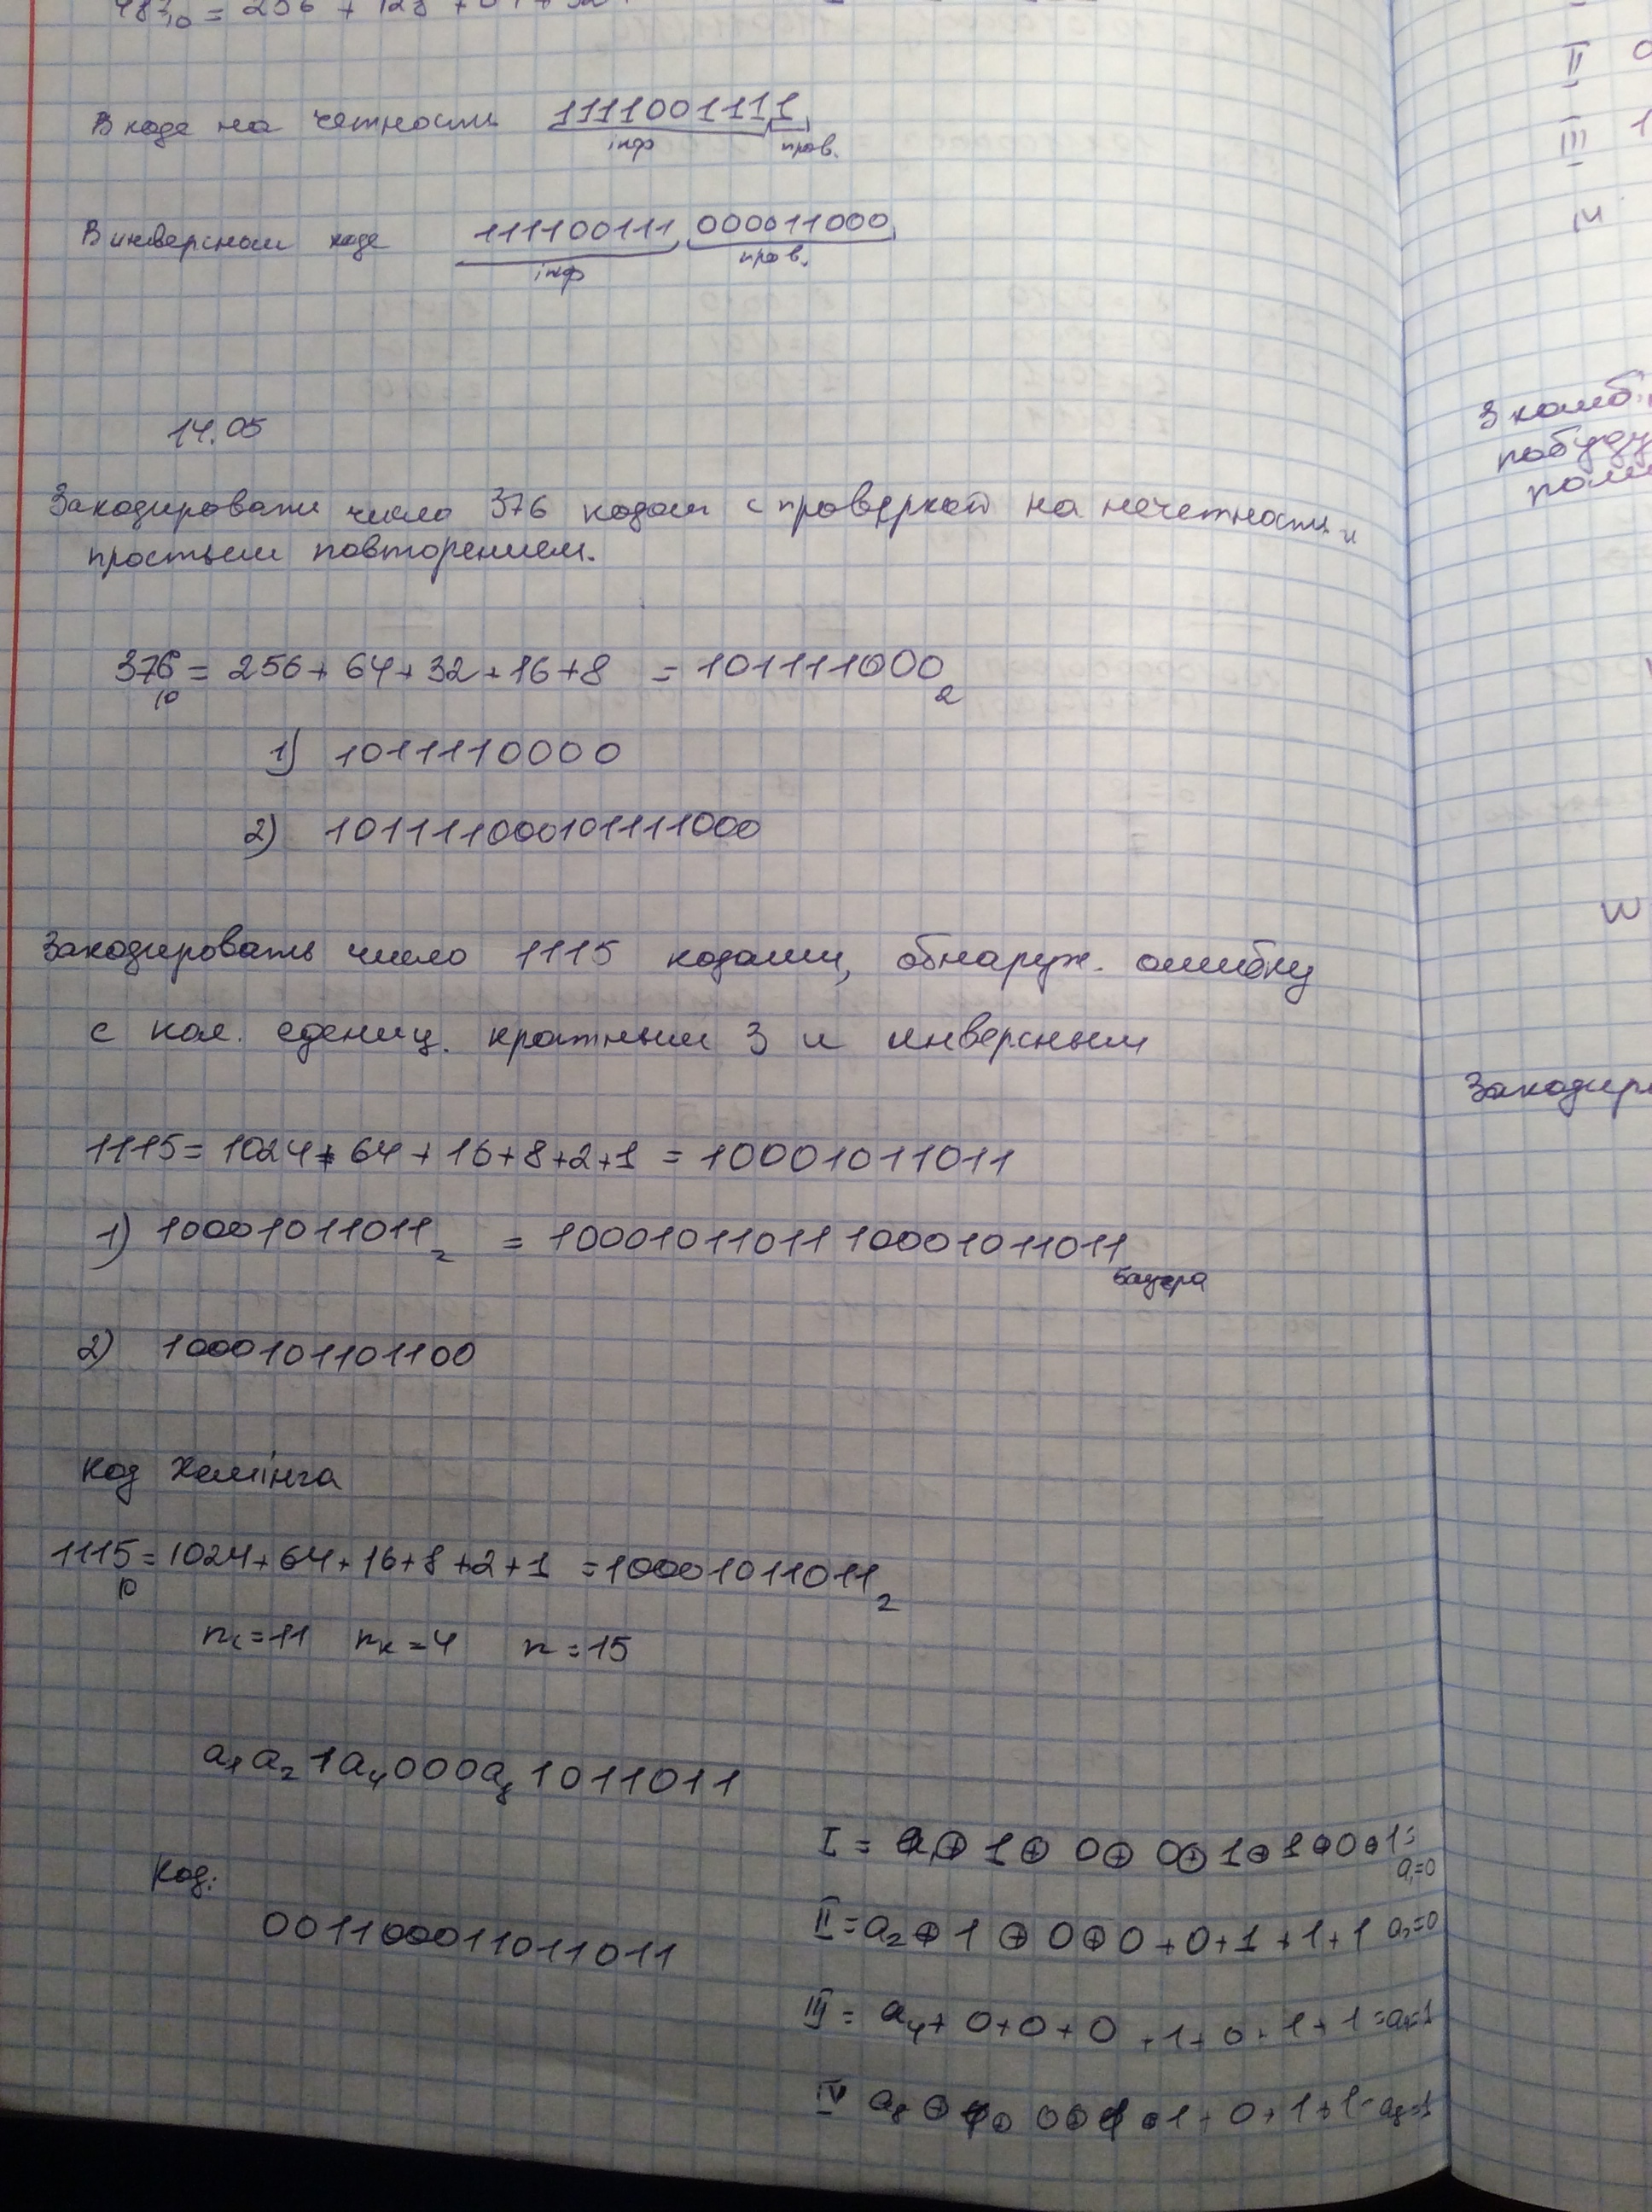 487₁₀ = 256 + 128 + 64 + 32
В коде на четность 1111001111
інф пров.
В инверсном коде 111100111 000011000
інф пров.
14.05
Закодировать число 376 кодом с проверкой на нечетность и
простым повторением.
376₁₀ = 256 + 64 + 32 + 16 + 8 = 101111000₂
1) 1011110000
2) 101111000101111000
Закодировать число 1115 кодами, обнаруж. ошибку
с кол. едениц. кратным 3 и инверсным
1115 = 1024 + 64 + 16 + 8 + 2 + 1 = 10001011011
1) 10001011011₂ = 10001011011 10001011011
Бауэра
2) 1000101101100
Код Хемінга
1115₁₀ = 1024 + 64 + 16 + 8 + 2 + 1 = 10001011011₂
nс = 11 nк = 4 n = 15
a₁a₂1a₄000a₈1011011
Код:
001100011011011
I = a₁ ⊕ 1 ⊕ 0 ⊕ 0 ⊕ 1 ⊕ 1 ⊕ 0 ⊕ 1 =
a₁=0
II = a₂ ⊕ 1 ⊕ 0 ⊕ 0 + 0 + 1 + 1 + 1 a₂=0
III = a₄ + 0 + 0 + 0 + 1 + 0 + 1 + 1 = a₄=1
IV a₈ ⊕ 0 ⊕ 1 + 0 + 1 + 1 = a₈=1
II 0
III 1
IV
З комб.
побуду
Закодир